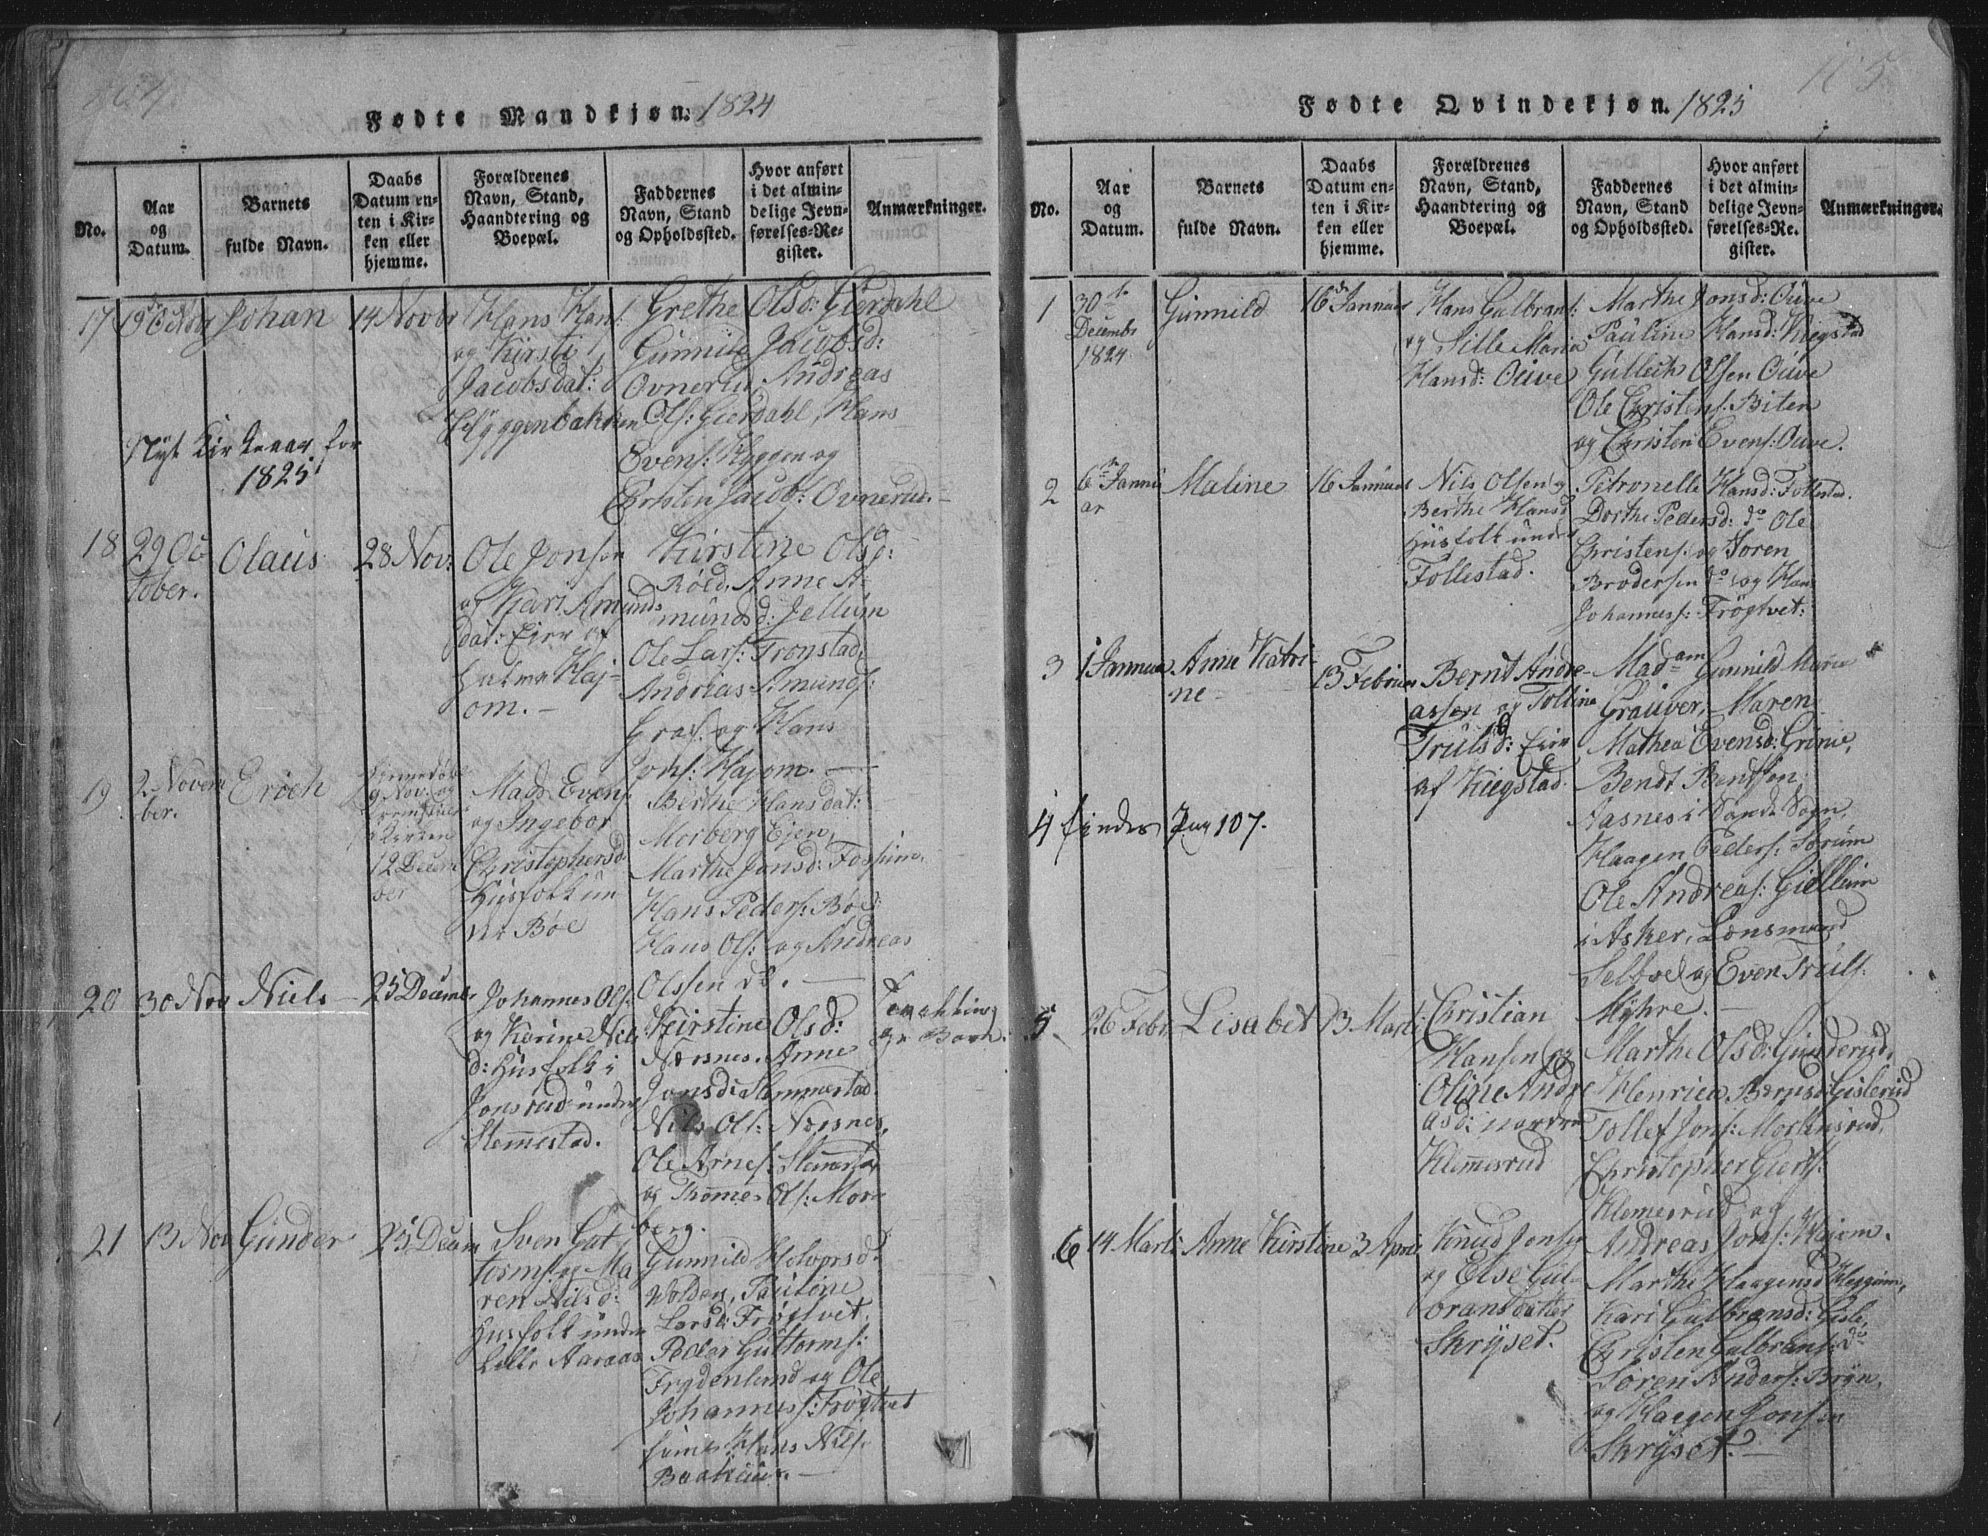 Fødte Mandkjøn. 1824
No.
Aar
og
Datum.
Barnets
fulde Navn.
Daabs
Datum en-
ten i Kir-
ken eller
hjemme.
Forældrenes
Navn, Stand,
Haandtering og
Boepæl.
Faddernes
Navn, Stand
og Opholdssted.
Hvor anført
i det almin-
delige Jevn-
førelses-Re-
gister.
Anmærkninger.
17
Johan
14 Novbr
Hans Hans:
og Kirsti
Jacobsdat:
Hyggenbakken
Grethe Olsd: Gierdahl
Gunnild Jacobsd:
Ovnerud Andreas
Ols: Gierdahl, Hans
Evens: Hyggen og
Christen Jacobs: Ovnerud.
Nyt Kirkeaar for
1825
18
29 Oc
tober.
Olaus
28 Nov:
Ole Jonsen
og Kari Amunds
dat: Eier af
Haj-
om.
Kirstine Olsd:
Böed, Anne A-
mundsd: Jellum
Ole Lars: Tronstad,
Andrias Amunds:
og Hans
Jons: Hajom.
19
2 Novem
ber.
Erich
9 Nov. og
i Kirken
12 Decem
ber
Mads Evens:
og Ingebor
Christophersd
Husfolk un
der Böe
Berthe Hansdat:
Morberg Ejer,
Marthe Jonsd: Fossum,
Hans Peders: Böe:
Hans Ols: og Andreas
Olssen do.
20
30 Nov
Niels
25 Decembr
Johannes Ols:
og Karine Nils
d: Husfolk i
Jonsrud under
Stemmestad.
Kirstine Olsd:
Nærsnes, Anne
Jonsd: Stemmestad
Nils Ols: Nærsnes,
Ole Arnes: Stemmestad
og Thomes Ols: Mor
berg.
21
13 Nov
Gunder
25 Decem
Sven Gut
torms: og Ma
ren Nilsd:
Husfolk under
Lille Aaraas
Gunnild Halvorsd:
Wolden, Pauline
Larsd: Frögtvet,
Peder Guttorms:
Frydenlund og Ole
Johannes: Frögtvet
Hans Nils:
Fødte Qvindekjøn. 1825
No.
Aar
og
Datum.
Barnets
fulde Navn.
Daabs
Datum en-
ten i Kir-
ken eller
hjemme.
Forældrenes
Navn, Stand,
Haandtering og
Boepæl.
Faddernes
Navn, Stand
og Opholdssted.
Hvor anført
i det almin-
delige Jevn-
førelses-Re-
gister.
Anmærkninger.
1
30te
Decembr
1824
Gunnild
16 Januar
Hans Gulbrans:
og Sille Maria
Hansd: Ouve
Marthe Jonsd: Ouve
Pauline Hansd: Kiegstad
Gullich Olsen Ouve
Ole Christens: Biten
og Christen Evens: Ouve.
2
6 Janu
ar
Maline
16 Januar
Nils Olsen og
Berthe Hansd
Husfolk under
Follestad.
Petronelle Hansd: Follestad.
Dorthe Pedersd: do Ole
Christens: og Soren
Brodersen do og Hans
Johannes: Frögtvet:
3
1 Januar
Anne Katri-
ne
13 Februar
Bernt Andre-
assen og Talline
Trulsd: Eier
af Kiegstad.
Madam Gunnild Marie
Grauver, Maren
Mathea Evensd: Grinie,
Bendt Bentsen
Aasnes i Sande Sogn,
Haagen Peders: Sörum
Ole Andreas: Giellum
i Asker, Lensmand
Selboe og Even Truls:
Myhre.
4 findes Pag 107.
5
26 Febr.
Lisabet
13 Marti
Christian
Hansen og
Oline Andre
asd: nordre
Klemmesrud
Marthe Olsd: Gunderud,
Henriea Berntsd: Gislerud
Tollef Jons: Mortensrud,
Christopher Gierts:
Klemesrud og
Andreas Jons: Hajom.
6
14 Marti
Anne Kirstine
3 April
Knud Jonsen
og Else Gul-
bransdatter
Skryset.
Marthe Haagensd: Heggum,
Kari Gulbransd: Gisle,
Christen Gulbrans: do
Soren Anders: Bryn,
og Haagen Jonsen
Skryset.